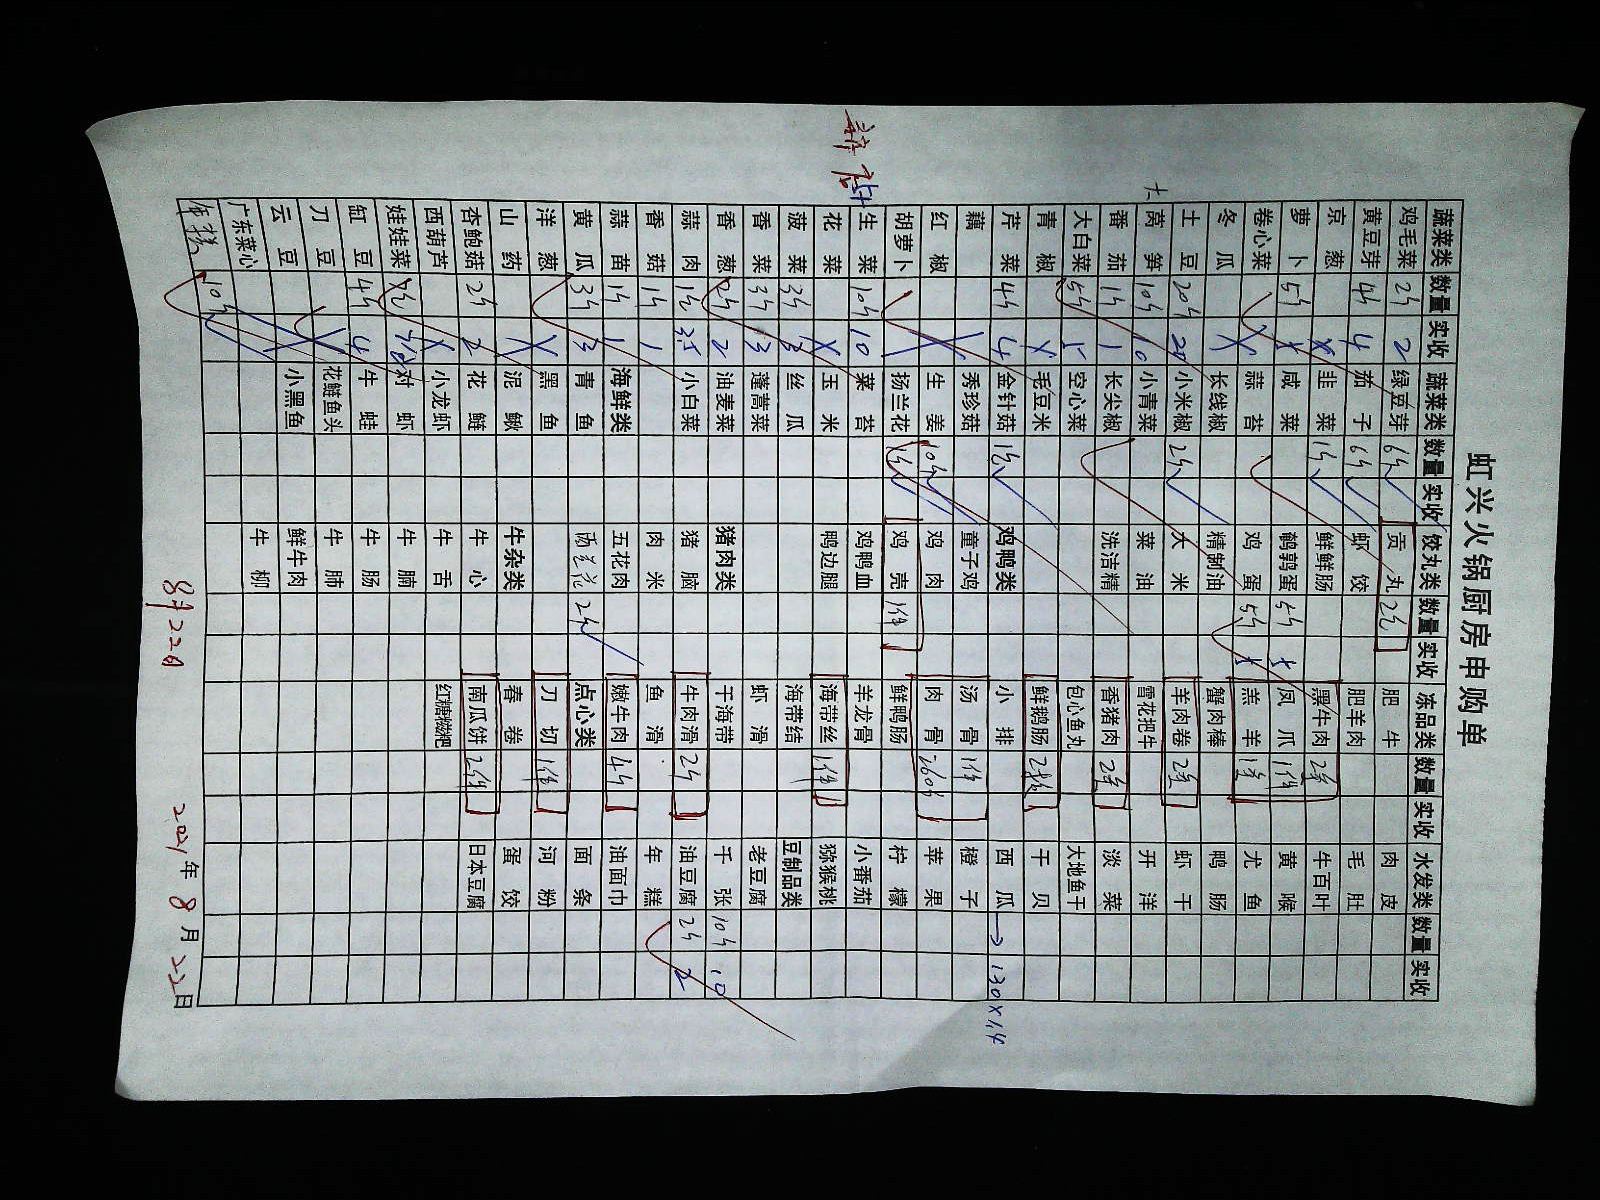 虹兴火锅厨房申购单
蔬菜类 数量 实收 蔬菜类 数量 实收 饺丸类 数量 实收 冻品类 数量 实收 水发类 数量 实收
鸡毛菜 2斤 2 绿豆芽 6斤 贡丸 2包 肥牛 肉皮
黄豆芽 4斤 4 茄子 6斤 虾饺 肥羊肉 毛肚
京葱 X 韭菜 1斤 鲜鲜肠 黑牛肉 2条 牛百叶
萝卜 5斤 咸菜 鹌鹑蛋 5斤 凤爪 1件 黄喉
卷心菜 X 蒜苔 鸡蛋 5斤 羔羊 1条 尤鱼
冬瓜 X 长线椒 精制油 蟹肉棒 鸭肠
土豆 20斤 20 小米椒 2斤 大米 羊肉卷 2条 虾干
莴笋 10斤 10 小青菜 菜油 雪花把牛 开洋
番茄 1斤 1 长尖椒 洗洁精 香猪肉 2条 淡菜
大白菜 5斤 5 空心菜 包心鱼丸 大地鱼干
青椒 X 毛豆米 鲜鹅肠 干贝
芹菜 4斤 4 金针菇 鸡鸭类 小排 西瓜 → 130×1.4
藕 秀珍菇 童子鸡 汤骨 1件 橙子
红椒 X 生姜 10斤 鸡肉 肉骨 苹果
胡萝卜 扬兰花 鸡壳 1件 鲜鸭肠 柠檬
生菜 10斤 10 菜苔 鸡鸭血 羊龙骨 小番茄
花菜 X 玉米 鸭边腿 海带丝 1件 猕猴桃
菠菜 3斤 3 丝瓜 海带结 豆制品类
香菜 3斤 3 蓬蒿菜 虾滑 老豆腐
香葱 2斤 2 油麦菜 猪肉类 干海带 千张 10斤 10
蒜肉 1包 小白菜 猪脑 牛肉滑 2斤 油豆腐 2斤 2
香菇 1斤 1 肉米 鱼滑 年糕
蒜苗 1斤 1 海鲜类 五花肉 嫩牛肉 4斤 油面巾
黄瓜 3斤 3 青鱼 2斤 点心类 面条
洋葱 X 黑鱼 刀切 1件 河粉
山药 X 泥鳅 牛杂类 春卷 蛋饺
杏鲍菇 2斤 2 花鲢 牛心 南瓜饼 2件 日本豆腐
西葫芦 X 小龙虾 牛舌 红糖糍粑
娃娃菜 对虾 牛腩
缸豆 4斤 4 牛蛙 牛肠
刀豆 X 花鲢鱼头 牛肺
云豆 小黑鱼 鲜牛肉
广东菜心 牛柳
10斤
8月22日 2021年8月22日